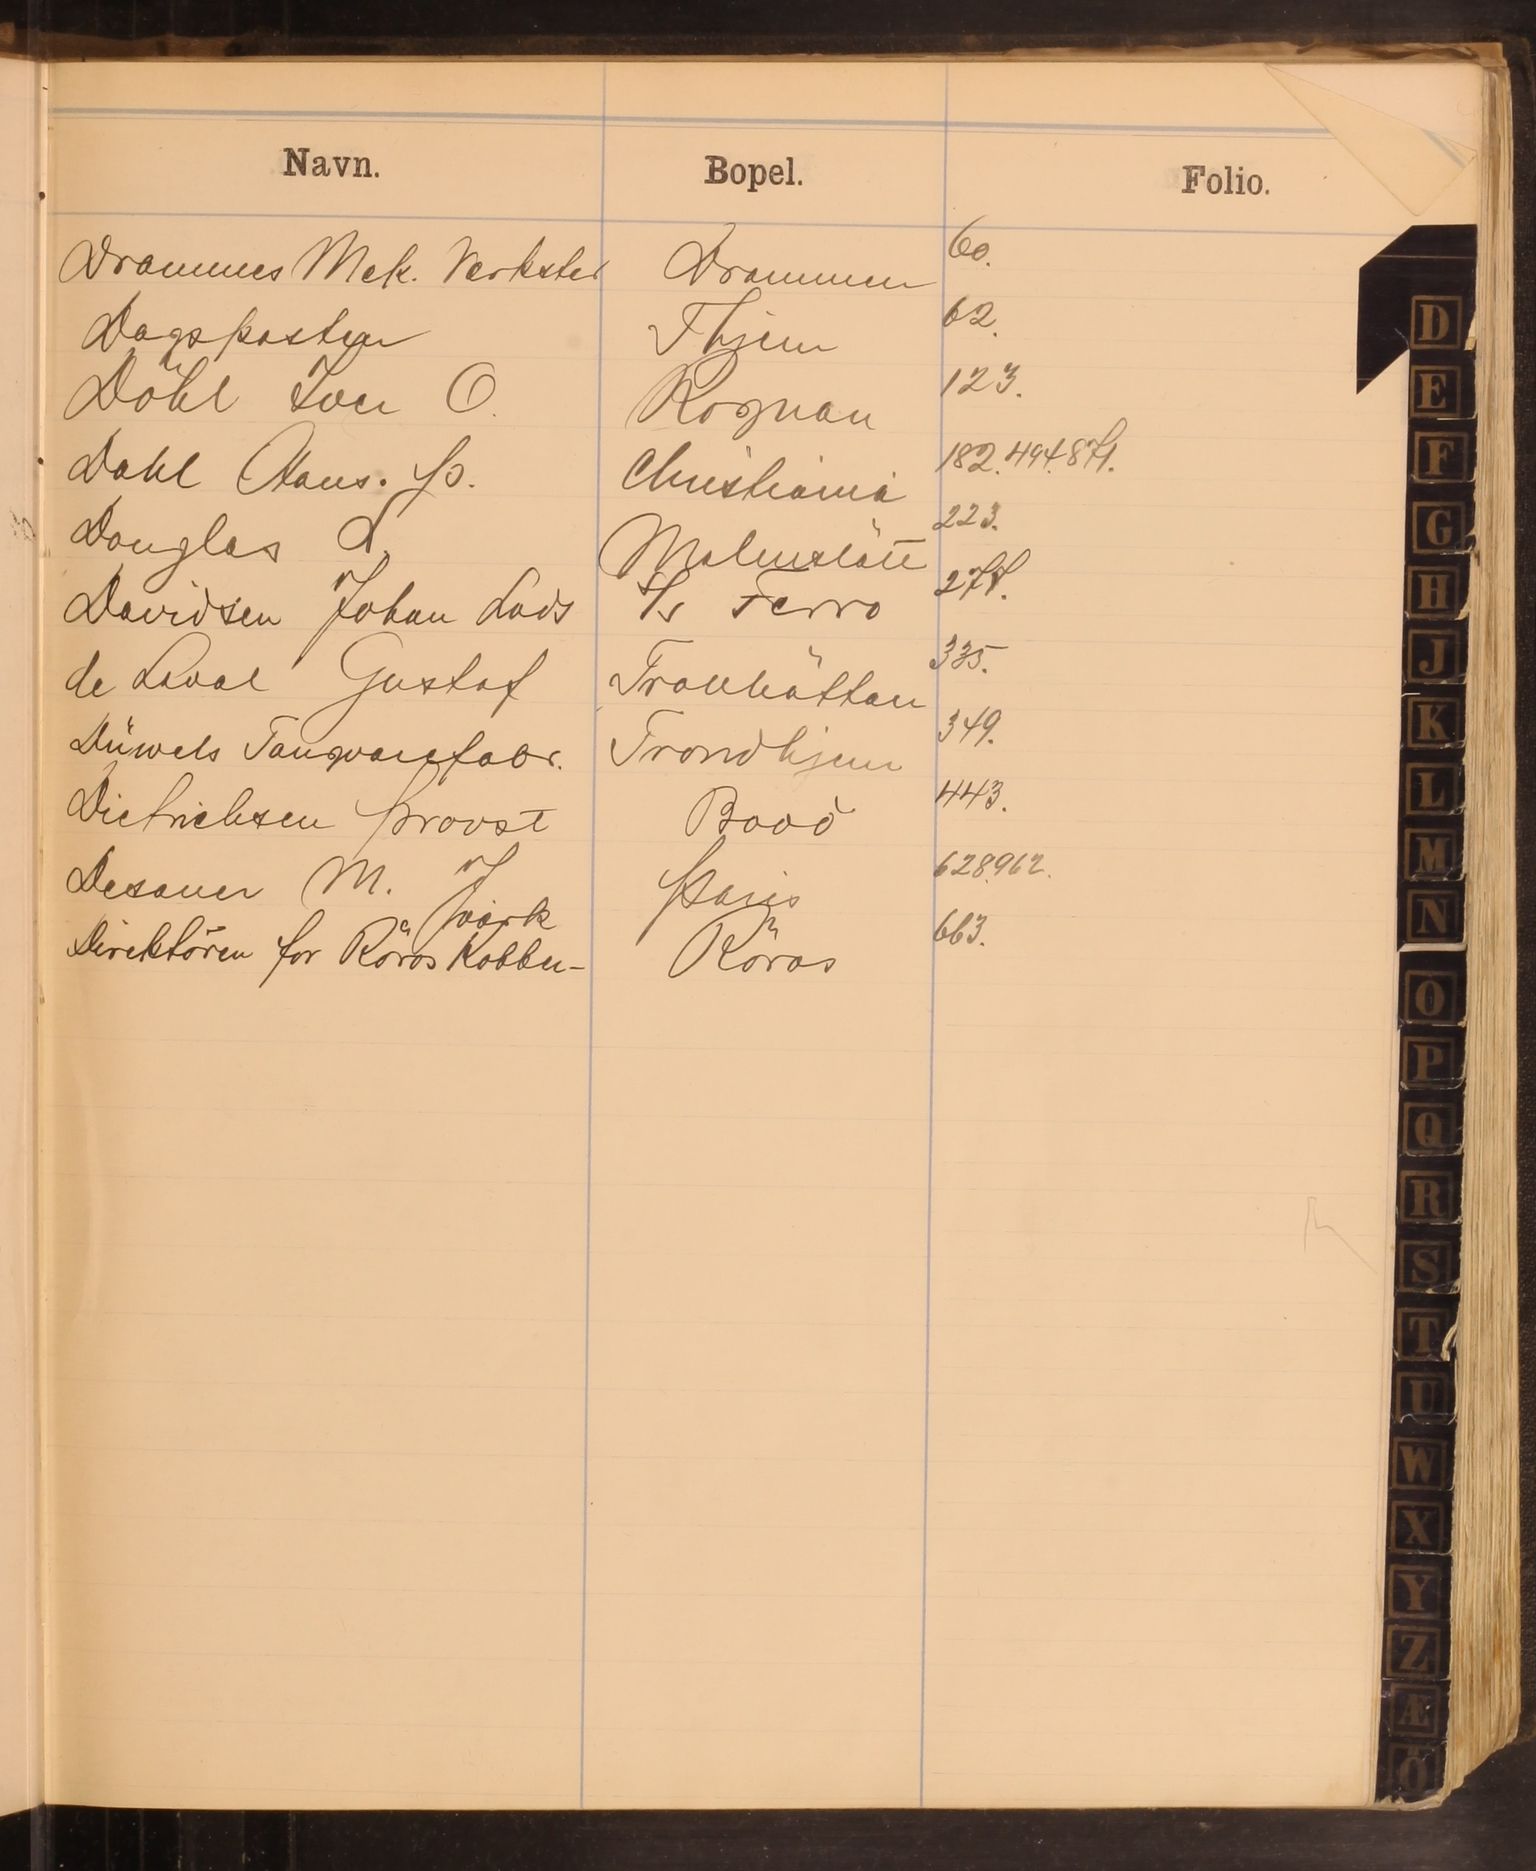 Navn. Bopel. Folio.
Drammens Mek. Verksted Drammen 60.
Dagsposten Thjem 62.
Döhl Iver O. Rognan 123.
Dahl Hans. P. Christiania 182. 494. 871.
Douglas L. Malmslätt 223.
Davidsen Johan Lods S/s Ferro 277.
de Laval Gustaf Trollhättan 335.
Düwels Tougvarefabr. Trondhjem 349.
Dietrichsen Provst Bodö 443.
Desauer M. J. Paris 628. 962.
värk
Direktören for Röros Kobber- Röros 663.
D
E
F
G
H
J
K
L
M
N
O
P
Q
R
S
T
U
W
X
Y
Z
Æ
Ö